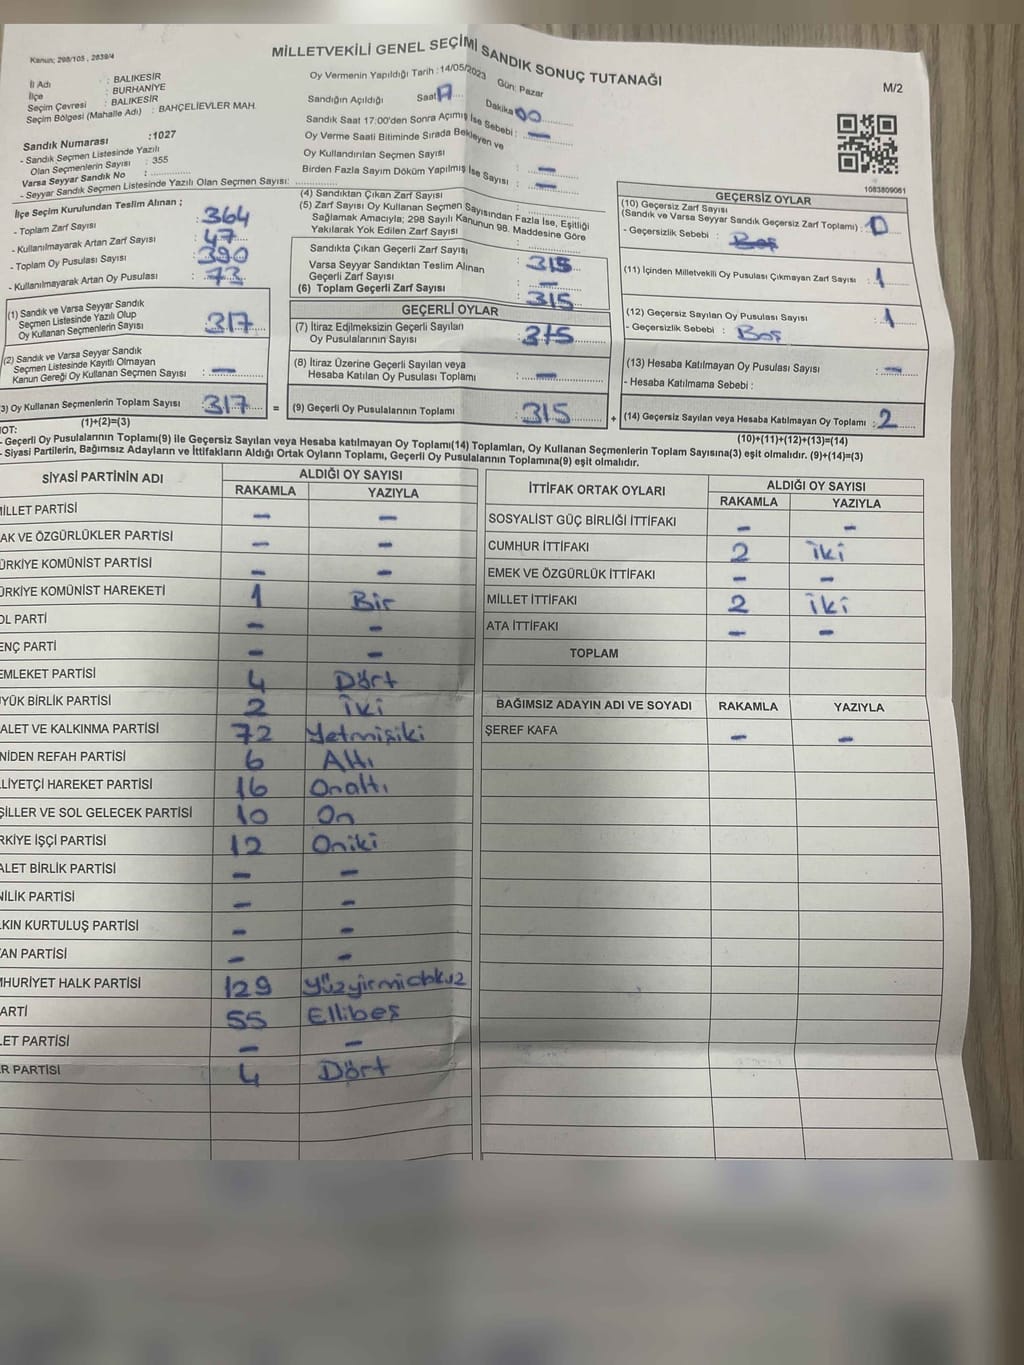 Kanun; 298/105 , 2839/4
MİLLETVEKİLİ GENEL SEÇİMİ SANDIK SONUÇ TUTANAĞI
M/2
İl Adı : BALIKESİR
İlçe : BURHANİYE
Seçim Çevresi : BALIKESİR
Seçim Bölgesi (Mahalle Adı) : BAHÇELİEVLER MAH.
Sandık Numarası :1027
- Sandık Seçmen Listesinde Yazılı
Olan Seçmenlerin Sayısı : 355
Varsa Seyyar Sandık No :
- Seyyar Sandık Seçmen Listesinde Yazılı Olan Seçmen Sayısı:
Oy Vermenin Yapıldığı Tarih : 14/05/2023 Gün: Pazar
Sandığın Açıldığı Saat Dakika 00
Sandık Saat 17:00'den Sonra Açımış İse Sebebi : -
Oy Verme Saati Bitiminde Sırada Bekleyen ve
Oy Kullandırılan Seçmen Sayısı : -
Birden Fazla Sayım Döküm Yapılmış İse Sayısı : -
1083809061
İlçe Seçim Kurulundan Teslim Alınan ;
- Toplam Zarf Sayısı : 364
- Kullanılmayarak Artan Zarf Sayısı : 47
- Toplam Oy Pusulası Sayısı : 390
- Kullanılmayarak Artan Oy Pusulası : 73
(1) Sandık ve Varsa Seyyar Sandık
Seçmen Listesinde Yazılı Olup
Oy Kullanan Seçmenlerin Sayısı : 317
(2) Sandık ve Varsa Seyyar Sandık
Seçmen Listesinde Kayıtlı Olmayan
Kanun Gereği Oy Kullanan Seçmen Sayısı : -
3) Oy Kullanan Seçmenlerin Toplam Sayısı : 317 =
(1)+(2)=(3)
(4) Sandıktan Çıkan Zarf Sayısı :
(5) Zarf Sayısı Oy Kullanan Seçmen Sayısından Fazla İse, Eşitliği
Sağlamak Amacıyla; 298 Sayılı Kanunun 98. Maddesine Göre
Yakılarak Yok Edilen Zarf Sayısı :
Sandıkta Çıkan Geçerli Zarf Sayısı : 315
Varsa Seyyar Sandıktan Teslim Alınan
Geçerli Zarf Sayısı : -
(6) Toplam Geçerli Zarf Sayısı : 315
GEÇERLİ OYLAR
(7) İtiraz Edilmeksizin Geçerli Sayılan
Oy Pusulalarının Sayısı : 315
(8) İtiraz Üzerine Geçerli Sayılan veya
Hesaba Katılan Oy Pusulası Toplamı : -
(9) Geçerli Oy Pusulalarının Toplamı : 315 +
GEÇERSİZ OYLAR
(10) Geçersiz Zarf Sayısı
(Sandık ve Varsa Seyyar Sandık Geçersiz Zarf Toplamı) : 0
- Geçersizlik Sebebi : Boş
(11) İçinden Milletvekili Oy Pusulası Çıkmayan Zarf Sayısı : 1
(12) Geçersiz Sayılan Oy Pusulası Sayısı : 1
- Geçersizlik Sebebi : Boş
(13) Hesaba Katılmayan Oy Pusulası Sayısı : -
- Hesaba Katılmama Sebebi :
(14) Geçersiz Sayılan veya Hesaba Katılmayan Oy Toplamı : 2
(10)+(11)+(12)+(13)=(14)
OT:
- Geçerli Oy Pusulalarının Toplamı(9) ile Geçersiz Sayılan veya Hesaba katılmayan Oy Toplamı(14) Toplamları, Oy Kullanan Seçmenlerin Toplam Sayısına(3) eşit olmalıdır. (9)+(14)=(3)
- Siyasi Partilerin, Bağımsız Adayların ve İttifakların Aldığı Ortak Oyların Toplamı, Geçerli Oy Pusulalarının Toplamına(9) eşit olmalıdır.
SİYASİ PARTİNİN ADI ALDIĞI OY SAYISI
RAKAMLA YAZIYLA
MİLLET PARTİSİ - -
AK VE ÖZGÜRLÜKLER PARTİSİ - -
ÜRKİYE KOMÜNİST PARTİSİ - -
ÜRKİYE KOMÜNİST HAREKETİ 1 Bir
OL PARTİ - -
ENÇ PARTİ - -
EMLEKET PARTİSİ 4 Dört
YÜK BİRLİK PARTİSİ 2 İki
ALET VE KALKINMA PARTİSİ 72 Yetmişiki
NİDEN REFAH PARTİSİ 6 Altı
LİYETÇİ HAREKET PARTİSİ 16 Onaltı
ŞİLLER VE SOL GELECEK PARTİSİ 10 On
RKİYE İŞÇİ PARTİSİ 12 Oniki
ALET BİRLİK PARTİSİ - -
NİLİK PARTİSİ - -
LKIN KURTULUŞ PARTİSİ - -
AN PARTİSİ - -
MHURİYET HALK PARTİSİ 129 Yüzyirmidokuz
ARTİ 55 Ellibeş
LET PARTİSİ - -
R PARTİSİ 4 Dört
İTTİFAK ORTAK OYLARI ALDIĞI OY SAYISI
RAKAMLA YAZIYLA
SOSYALİST GÜÇ BİRLİĞİ İTTİFAKI - -
CUMHUR İTTİFAKI 2 İki
EMEK VE ÖZGÜRLÜK İTTİFAKI - -
MİLLET İTTİFAKI 2 İki
ATA İTTİFAKI - -
TOPLAM
BAĞIMSIZ ADAYIN ADI VE SOYADI RAKAMLA YAZIYLA
ŞEREF KAFA - -